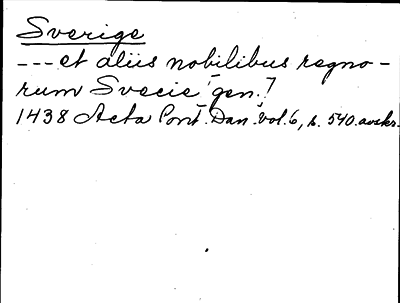 Sverige
--- et aliis nobilibus regno-
rum Svecie [gen.]
1438 Acta Pont. Dan. vol. 6, s. 540. avskr.